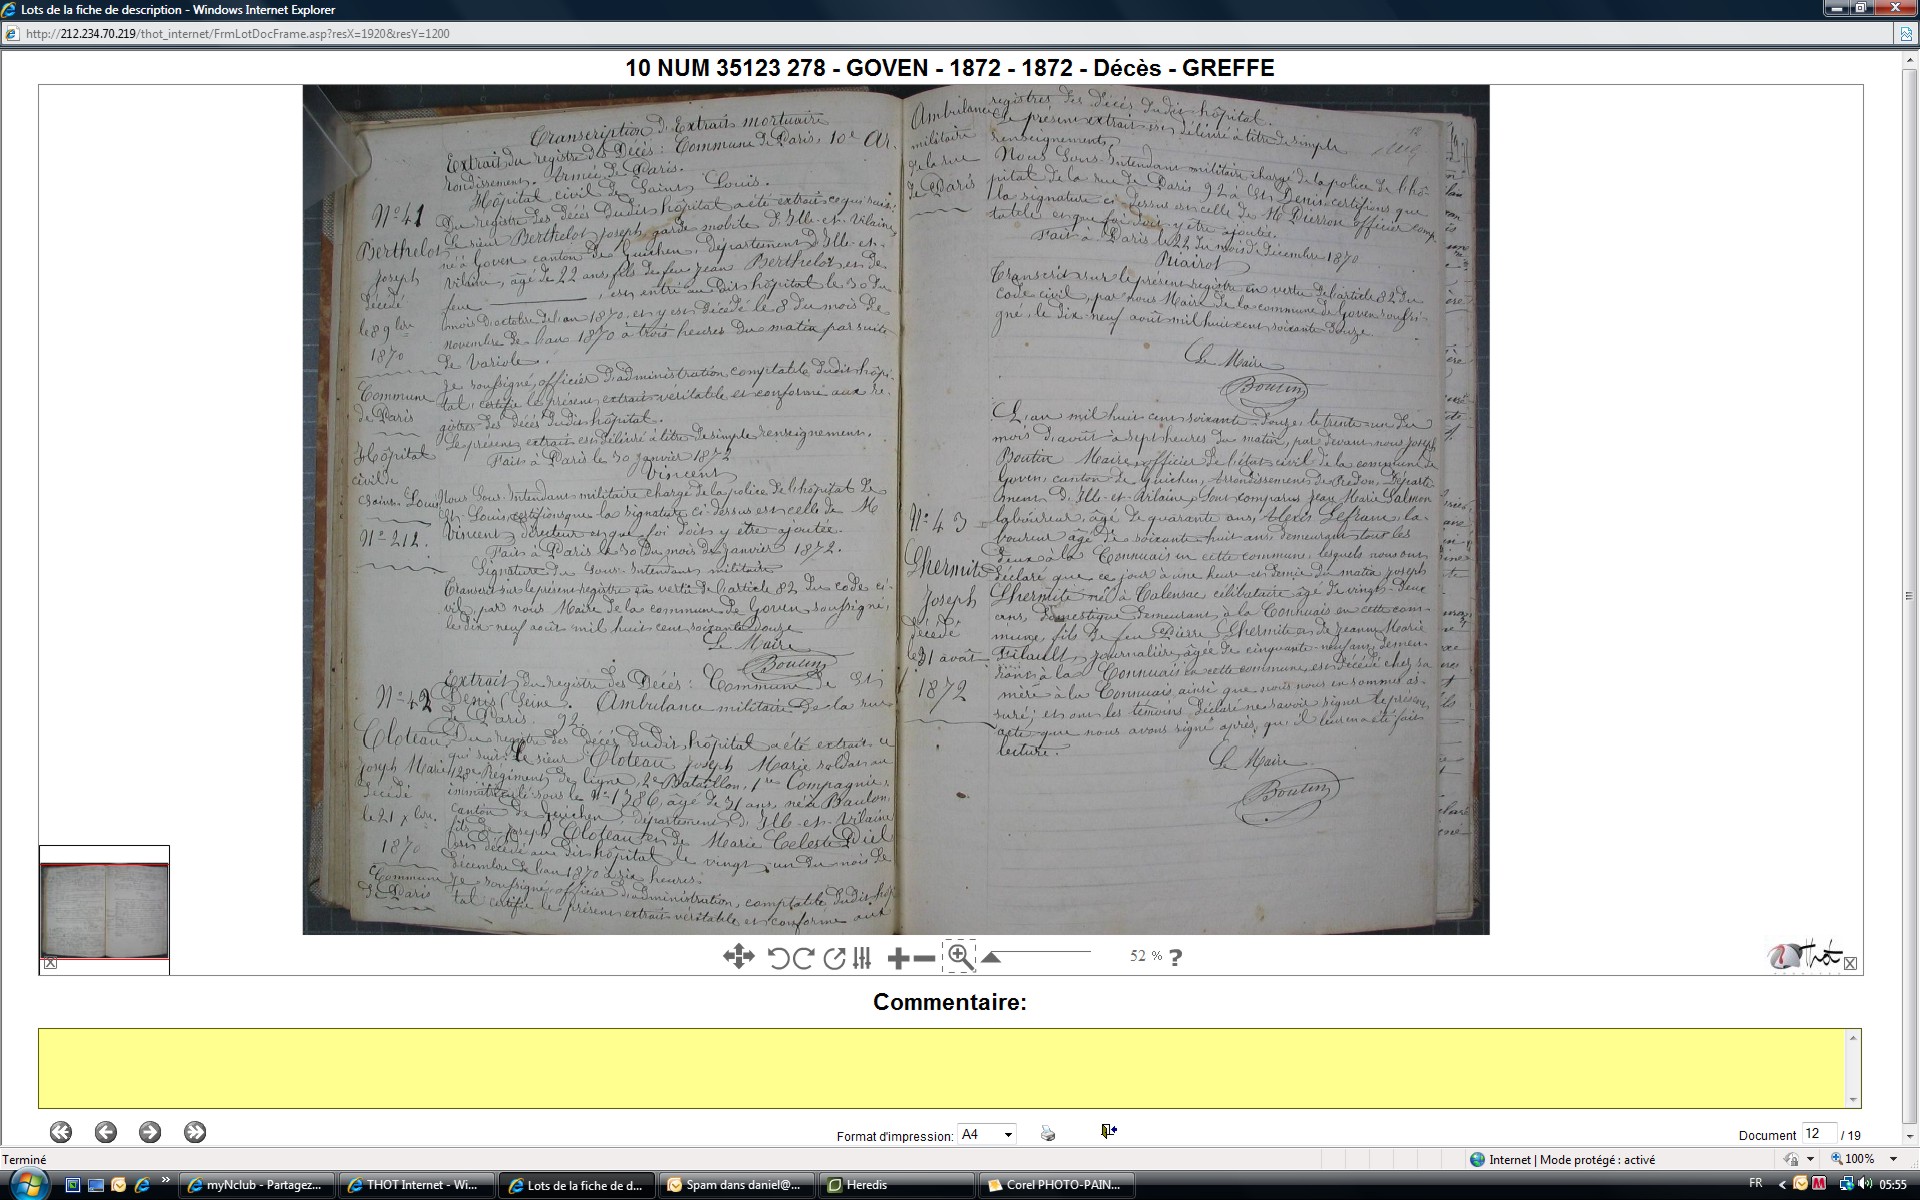 Lots de la fiche de description - Windows Internet Explorer
http://212.234.70.219/thot_internet/FrmLotDocFrame.asp?resX=1920&resY=1200
10 NUM 35123 278 - GOVEN - 1872 - 1872 - Décès - GREFFE
Transcription d'Extraits mortuaire
Extrait du registre des Décès : Commune de Paris, 10e Ar-
rondissement. Armée de Paris.
Hôpital civil de Saint Louis.
N° 41
Du registre des décès dudit hôpital a été extrait ce qui suit:
Berthelot
Joseph
décédé
le 8 9bre
1870
Le sieur Berthelot Joseph garde mobile d'Ille-et-Vilaine,
né à Goven canton de Guichen, département d'Ille-et-
Vilaine, âgé de 22 ans, fils de feu Jean Berthelot, et de
feue , est entré au dit hôpital le 30 du
mois d'octobre de l'an 1870, et y est décédé le 8 du mois de
novembre de l'an 1870 à trois heures du matin par suite
de Variole.
Commune
de Paris
Je soussigné, officier d'administration comptable dudit hôpi-
tal, certifie le présent extrait véritable et conforme aux re-
gistres des décès dudit hôpital.
Le présent extrait est délivré à titre de simple renseignement.
Fait à Paris le 30 janvier 1872
Vincent
Hôpital
civil de
Saint-Louis
N° 212.
Nous Sous-Intendant militaire chargé de la police de l'hôpital de
St Louis, certifions que la signature ci-dessus est celle de M
Vincent, directeur et que foi doit y être ajoutée.
Fait à Paris le 30 du mois de janvier 1872.
Signature du Sous-Intendant militaire
Transcrit sur le présent registre en vertu de l'article 82 du code ci-
vil, par nous Maire de la commune de Goven soussigné,
le dix-neuf août mil huit cent soixante douze
Le Maire
Boutin
N° 42
Extrait du registre des Décès : Commune de St
Denis (Seine. Ambulance militaire de la rue
de Paris, 92
Cloteau
Joseph Marie
décédé
le 21 Xbre.
1870
Commune
de Paris
Du registre des Décès dudit hôpital a été extrait ce
qui suit: Le sieur Cloteau Joseph Marie soldat au
128e Régiment de ligne, 2e Bataillon, 1re Compagnie,
immatriculé sous le N° 1386, âgé de 31 ans, né à Baulon,
canton de Guichen, département d'Ille-et-Vilaine
fils de Joseph Cloteau et de Marie Celeste
est décédé au dit hôpital le vingt un du mois de
décembre de l'an 1870 à six heures.
Je soussigné, officier d'administration, comptable dudit hôpi-
tal certifie le présent extrait véritable et conforme aux
Ambulance
militaire
de la rue
de Paris
registres des décès dudit hôpital.
Le présent extrait est délivré à titre de simple
renseignement.
Nous Sous-Intendant militaire chargé de la police de l'hô-
pital de la rue de Paris 92 à St Denis certifions que
la signature ci-dessus est celle de Mr Pierron officier comp-
table et que foi doit y être ajoutée.
Fait à Paris le 22 du mois de décembre 1870
Transcrit sur le présent registre en vertu de l'article 82 du
code civil, par nous Maire de la commune de Goven soussi-
gné, le dix-neuf août mil huit cent soixante douze
Le Maire
Boutin
N° 43
Lhermite
Joseph
décédé
le 31 août
1872
L'an mil huit cent soixante-douze, le trente-un du
mois d'août à sept heures du matin, par devant nous Joseph
Boutin Maire, officier de l'état civil de la commune de
Goven, canton de Guichen, Arrondissement de Redon, Départe-
ment d'Ille-et-Vilaine, sont comparus Jean Marie Salmon
laboureur, âgé de quarante ans, Alexis Lefranc, la-
boureur âgé de soixante-huit ans, demeurant tous les
deux à la Connuais en cette commune, lesquels nous ont
déclaré que ce jour à une heure et demie du matin Joseph
Lhermite né à Talensac célibataire âgé de vingt-deux
ans, domestique demeurant à la Connuais en cette com-
mune, fils de feu Pierre Lhermite et de Jeanne Marie
journalière, âgée de cinquante-neuf ans, demeu-
rant à la Connuais en cette commune, est décédé chez sa
mère à la Connuais, ainsi que nous nous en sommes as-
suré; et ont les témoins déclaré ne savoir signer le présent
acte que nous avons signé après, qu'il leur en a été fait
lecture.
Le Maire
Boutin
52 % ?
Thot
Commentaire:
Format d'impression: A4
Document 12 / 19
Terminé
Internet | Mode protégé : activé
100%
myNclub - Partagez...
THOT Internet - Wi...
Lots de la fiche de d...
Spam dans daniel@...
Heredis
Corel PHOTO-PAIN...
FR
05:55